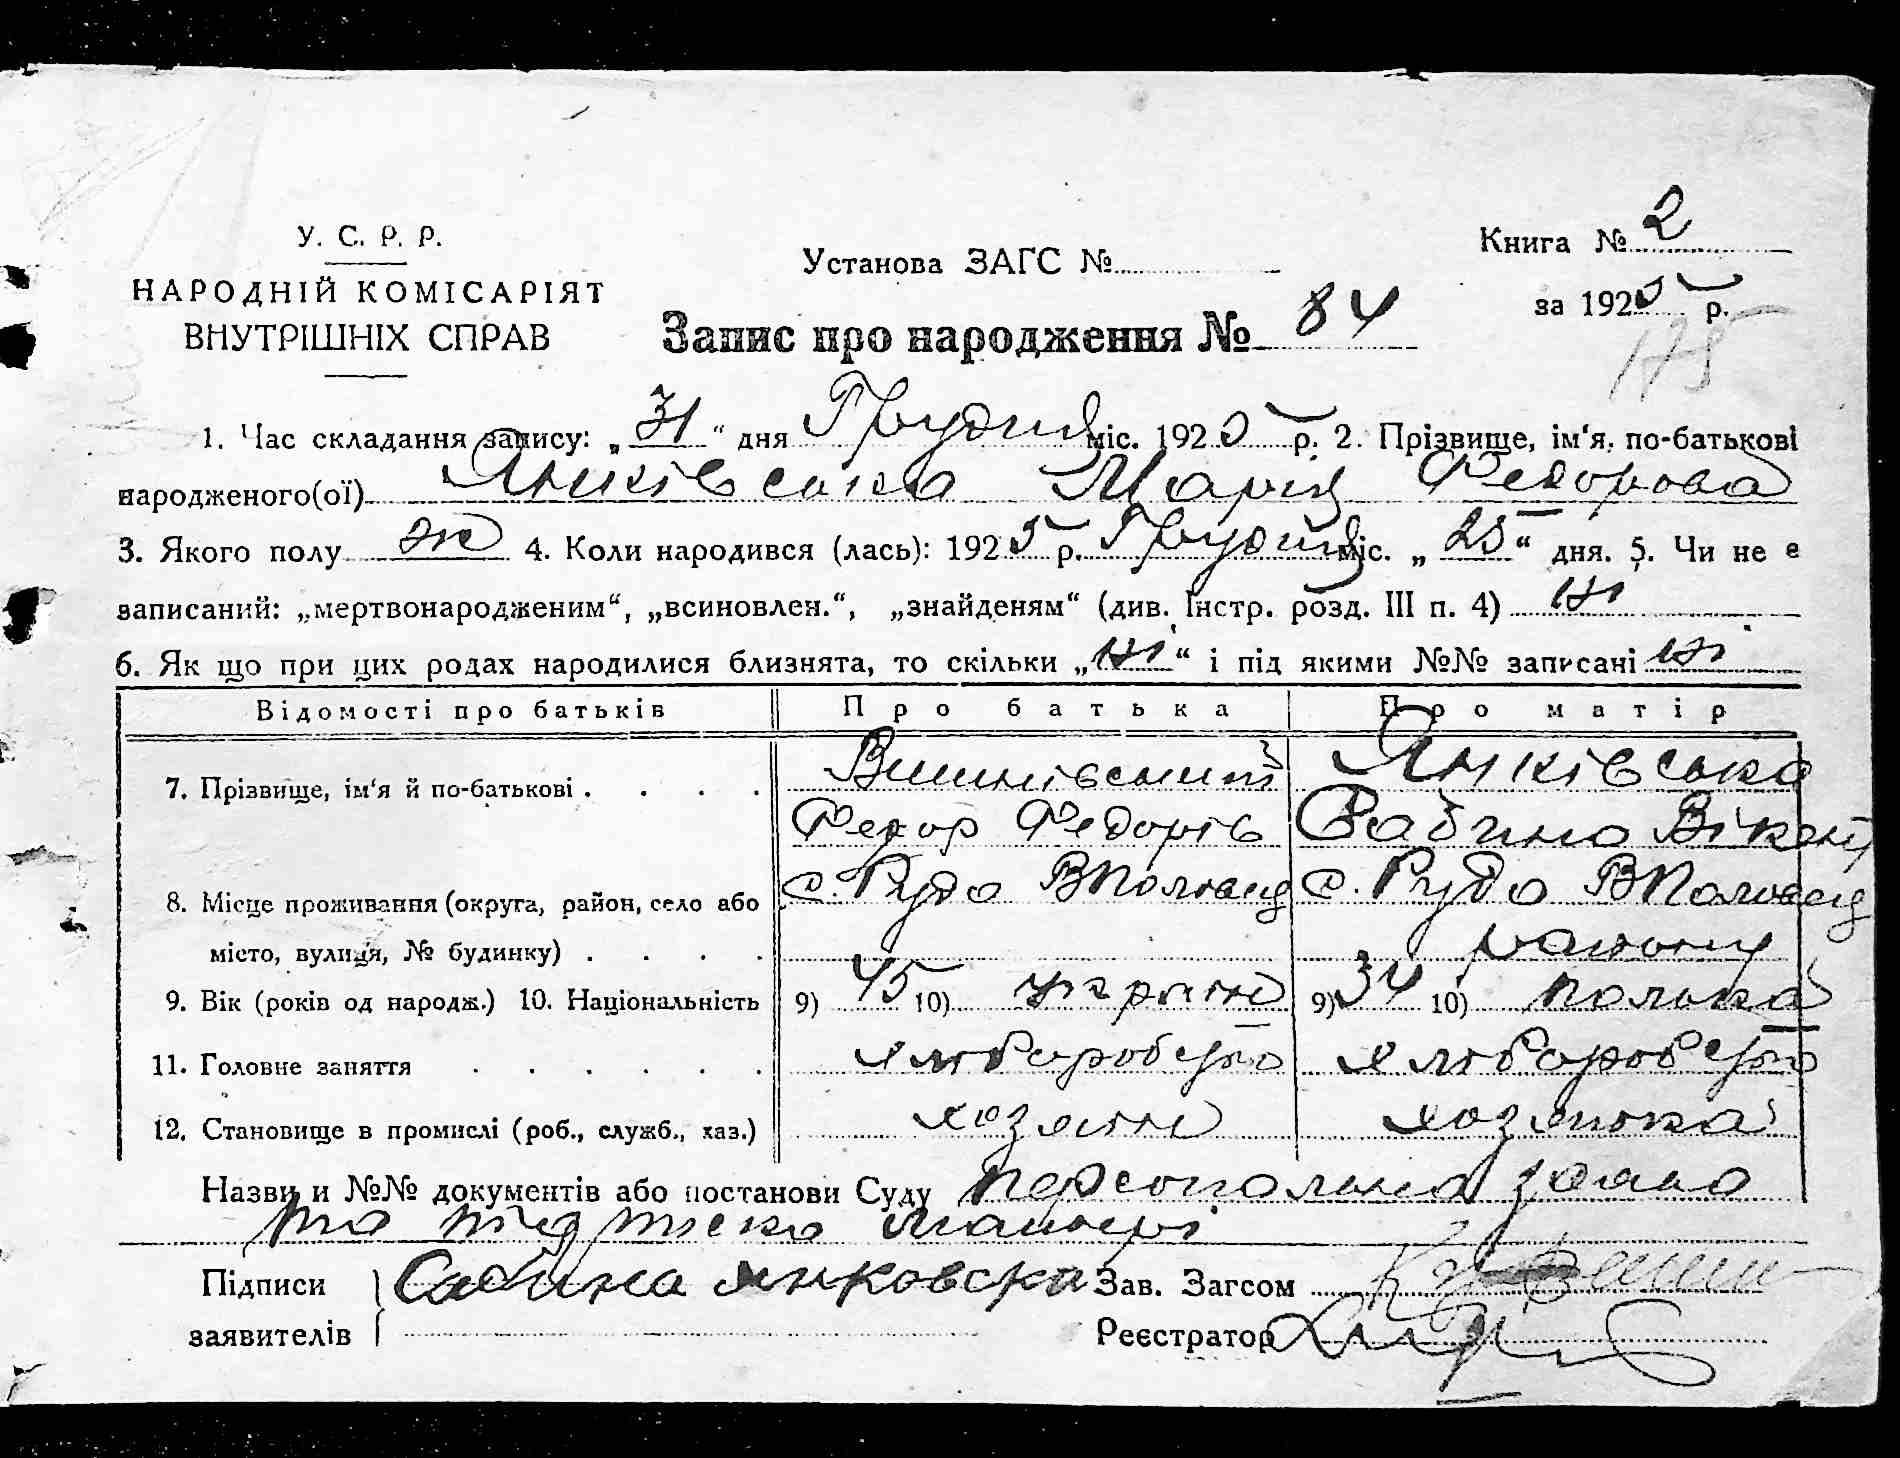 У. С. Р. Р.
НАРОДНІЙ КОМІСАРІЯТ
ВНУТРІШНІХ СПРАВ
Установа ЗАГС №
Книга № 2
за 1925 р.
175
Запис про народження № 84
1. Час складання запису: „31“ дня Грудня міс. 1925 р. 2. Прізвище, ім'я, по-батькові
народженого(ої) Янківська Марія Федорова
3. Якого полу ж 4. Коли народився (лась): 1925 р. Грудня міс. „25“ дня. 5. Чи не є
записаний: „мертвонародженим“, „всиновлен.“, „знайденям“ (див. Інстр. розд. III п. 4) ні
6. Як що при цих родах народилися близнята, то скільки „ні“ і під якими №№ записані ні
Відомості про батьків Про батька Про матір
7. Прізвище, ім'я й по-батькові . . . . Вишнівський Янківська
Федор Федорів Сабина Вікент
8. Місце проживання (округа, район, село або с. Руда ВПоловец с. Руда ВПоловец
місто, вулиця, № будинку) . . . . району
9. Вік (років од народж.) 10. Національність 9) 45 10) україн 9) 34 10) полька
11. Головне заняття . . . . . . хліборобство хліборобство
12. Становище в промислі (роб., служб., хаз.) хозяїн хозяйка
Назви и №№ документів або постанови Суду персональна заява
та підписка матері
Підписи заявителів Сабина Янковска Зав. Загсом
Реєстратор